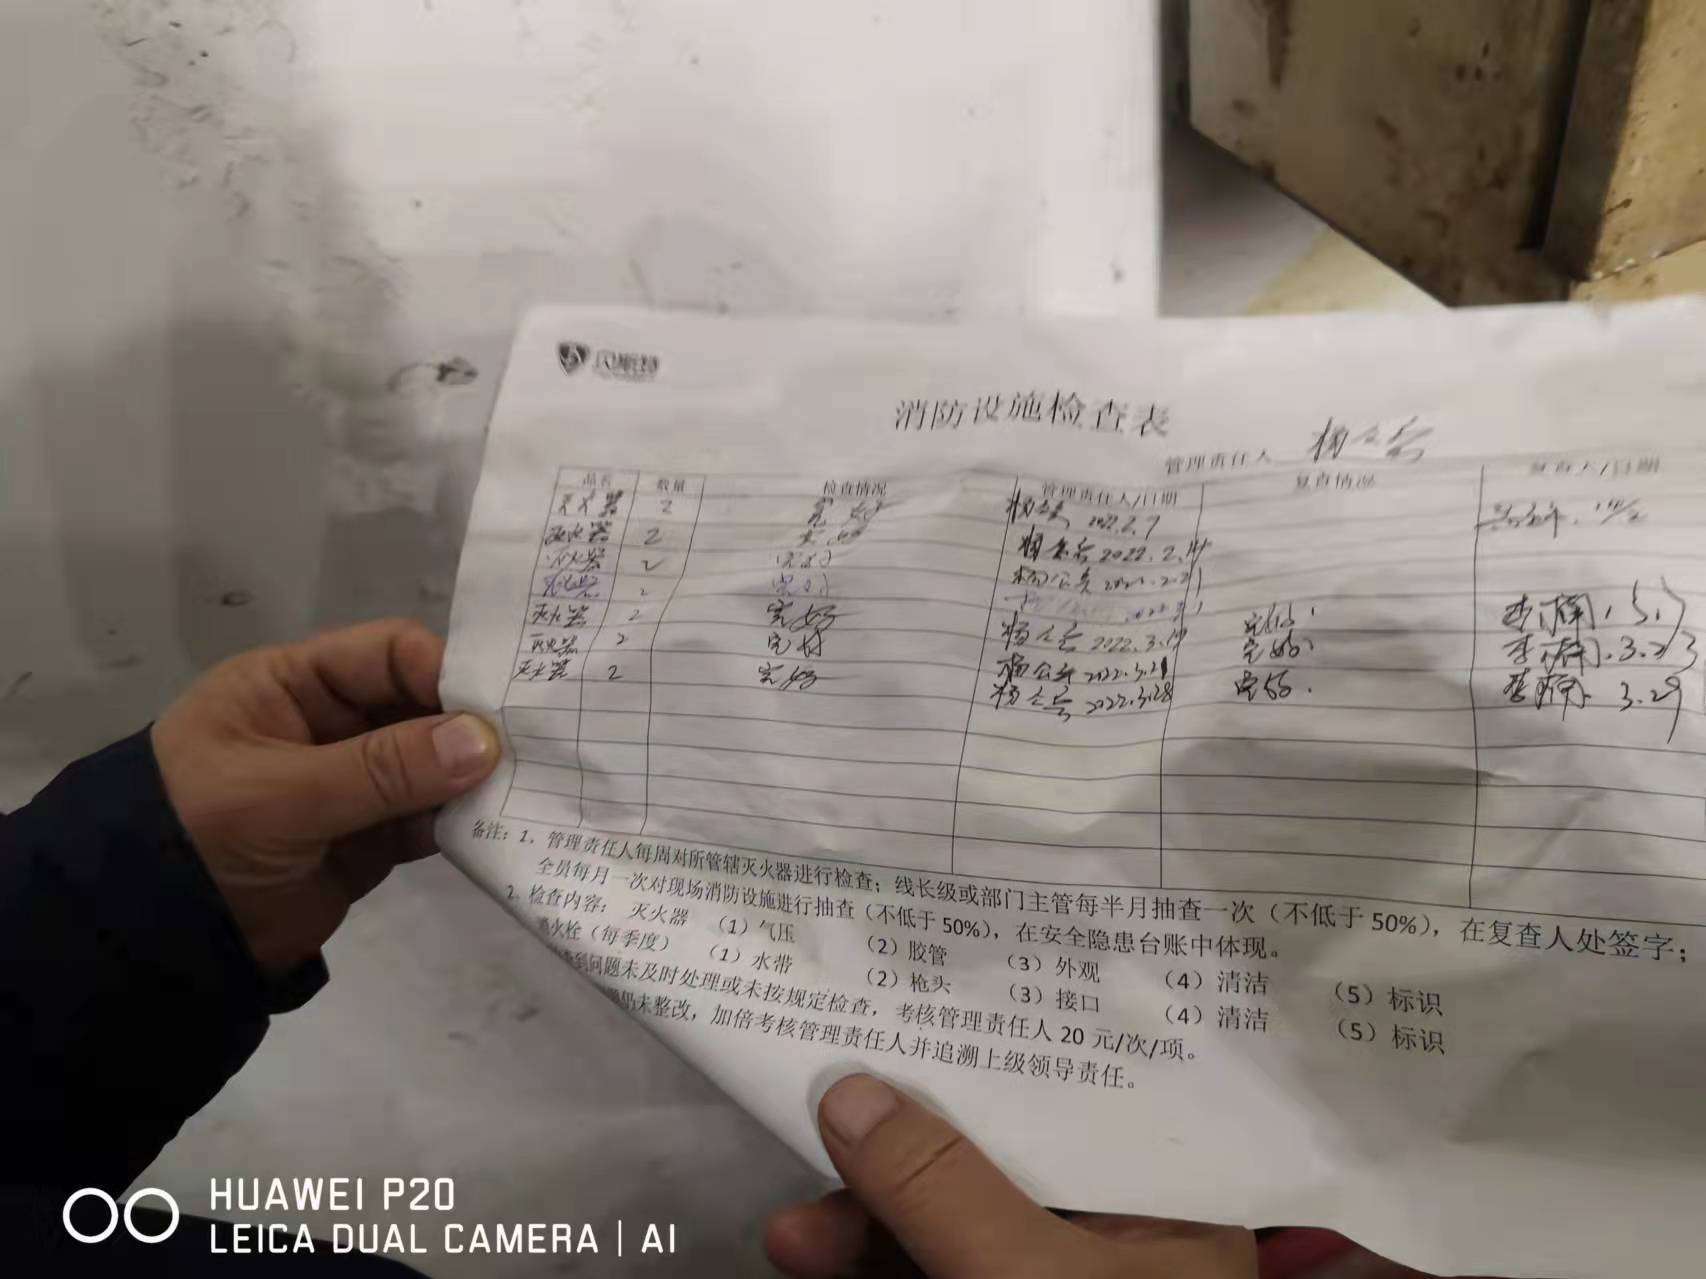 贝斯特
消防设施检查表
管理责任人
品名 数量 检查情况 管理责任人/日期 复查情况 复查人/日期
灭火器 2 完好 2022.2.7
灭火器 2 完好 2022.2.14
灭火器 2 完好 2022.2.21
灭火器 2 完好
灭火器 2 完好 2022.3.14 完好
灭火器 2 完好 2022.3.21 完好 3.23
灭火器 2 完好 2022.3.28 完好 3.29
备注：1、管理责任人每周对所管辖灭火器进行检查；线长级或部门主管每半月抽查一次（不低于50%），在复查人处签字；
全员每月一次对现场消防设施进行抽查（不低于50%），在安全隐患台账中体现。
2、检查内容： 灭火器 （1）气压 （2）胶管 （3）外观 （4）清洁 （5）标识
消火栓（每季度） （1）水带 （2）枪头 （3）接口 （4）清洁 （5）标识
问题未及时处理或未按规定检查，考核管理责任人20元/次/项。
仍未整改，加倍考核管理责任人并追溯上级领导责任。
HUAWEI P20
LEICA DUAL CAMERA | AI